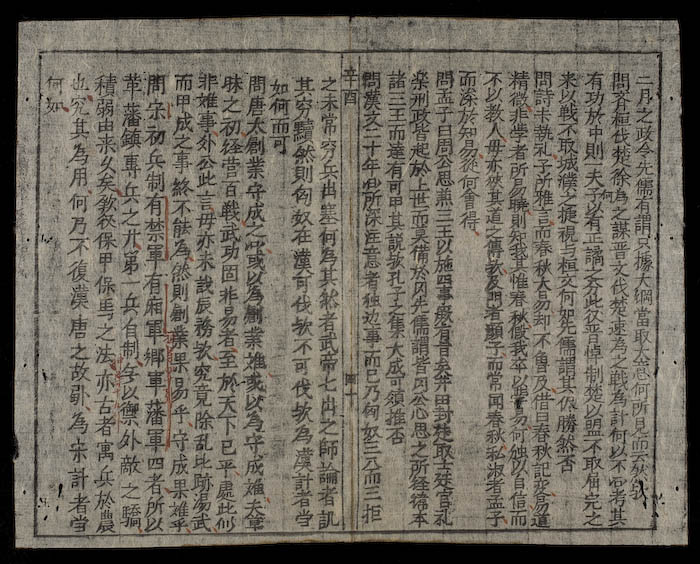 二月之政令先儒有謂只據大綱當取大志何所見而云然歟
問齊桓伐楚徐為之謀晋文伐楚速為之戰為計何以不同者其
有功於中則一夫子以有正譎之分此仅晋悼制楚以盟不取屈完之
来以戰不取城濮之捷視与桓文何如先儒謂其仅勝然否
問詩书执礼子所雅言而春秋大易却不曾及借曰春秋記変易道
精微非學者所易曉則知我其惟春秋假我卒以學易何独以自信而
不以教人毋亦秘其道之傳歟及門者顏子而常闻春秋私淑者孟子
而深於知易從何會得
問孟子曰周公思兼三王以施四事厥有旨矣井田封建取士建官礼
楽刑政皆起於上世而莫备於周先儒謂皆周公心思之所經德本
諸三王而達有可甲其説歟孔子之集大成可須推否
問漢文二十年间所深注意者独边事而已乃匈奴三入而三拒
辛酉
之未常穷兵出塞何為其然者武帝七出之師論者訊
其穷黷然則匈奴在漢可伐歟不可伐歟為漢計者當
如何而可
問唐太創業守成之问或以為創業难或以為守成难夫草
昧之初経营百戰武功固非易者至於天下已平處此似
非难事外公此言毋亦未識辰務歟究竟除乱比跡湯武
而甲成之事終不能為然則創業果易乎守成果难乎
問宋初兵制有禁軍有廂軍鄉軍藩軍四者所以
革藩鎮專兵之廾第一兵有制矣以禦外敵之驕
積弱由来久矣教於保甲保馬之法亦古者寓兵於農
也究其為用何乃不復漢唐之故郢為宋計者當
何如